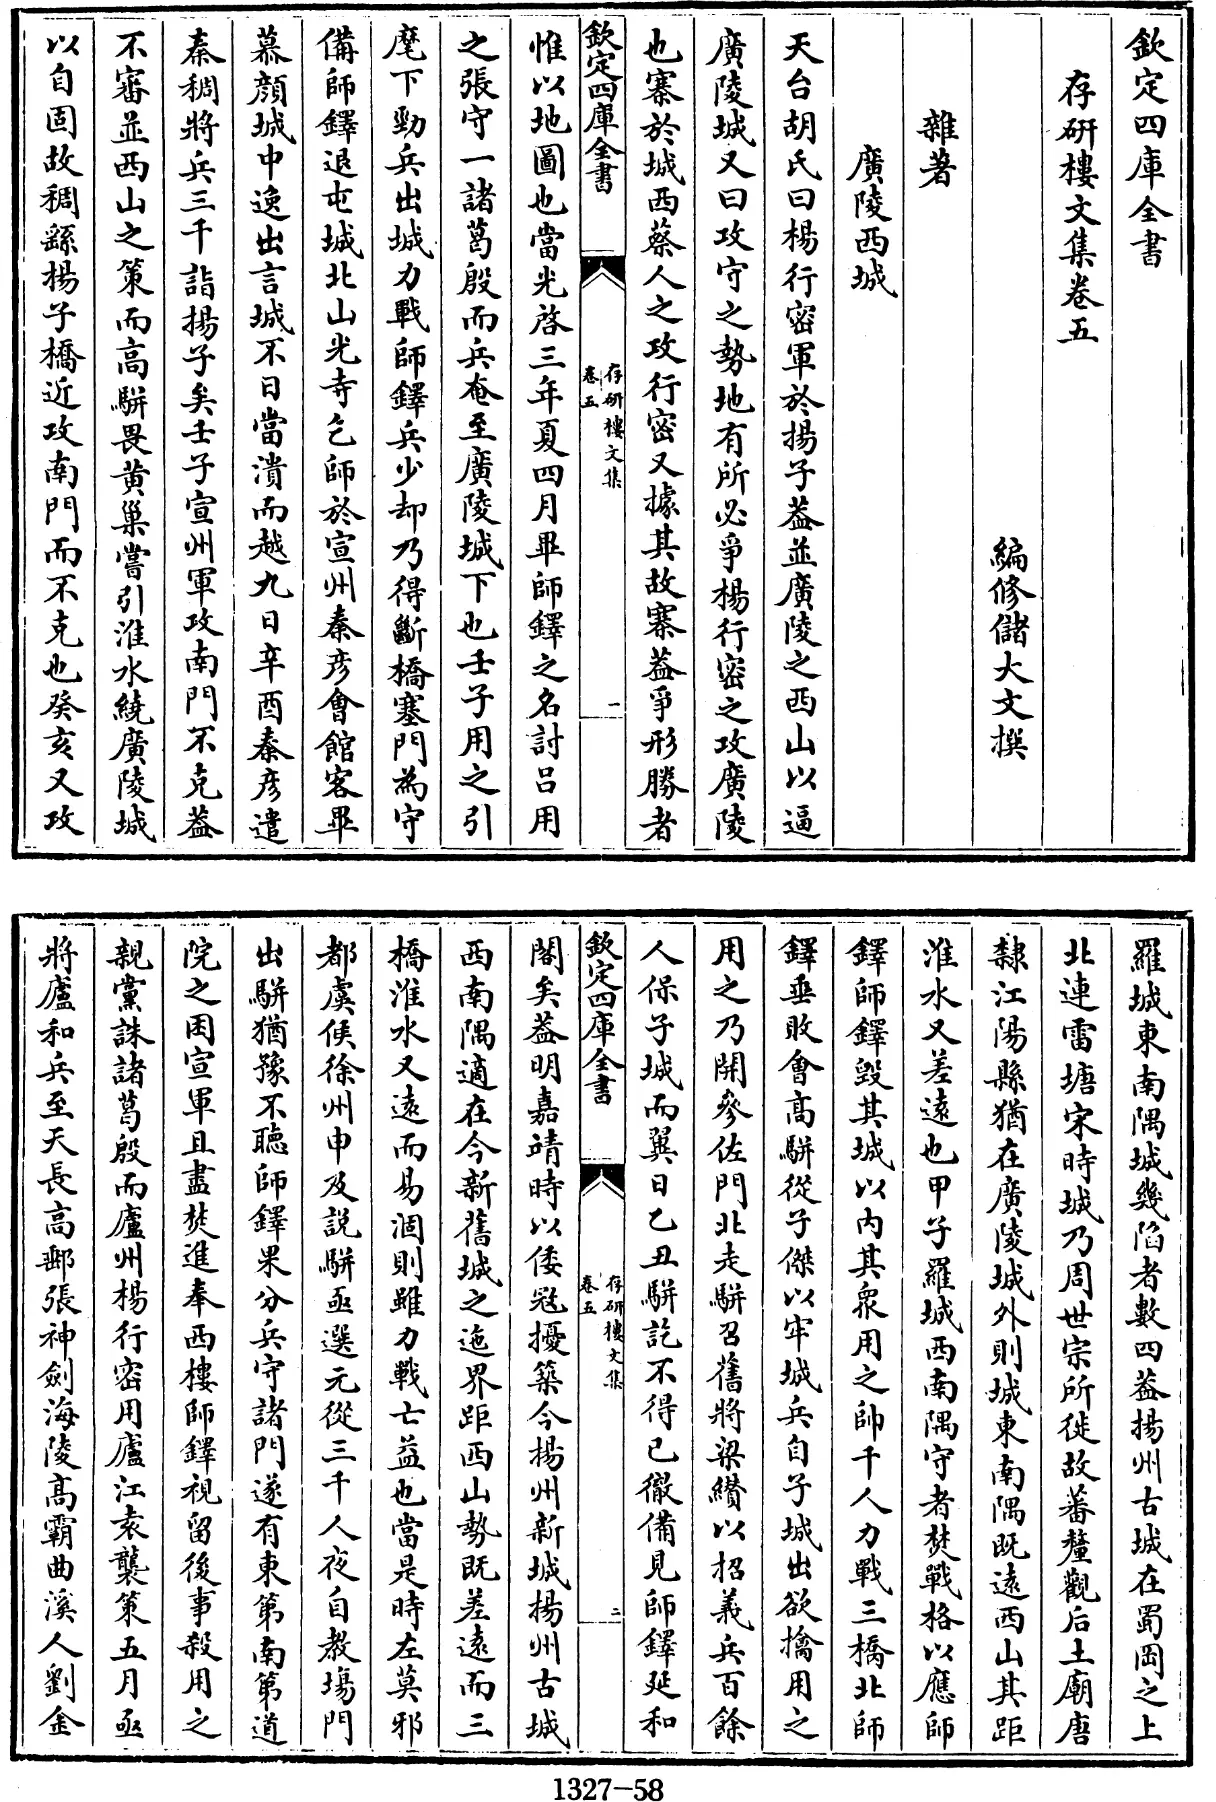 欽定四庫全書
存研樓文集卷五
編修儲大文撰
雜著
廣陵西城
天台胡氏曰楊行密軍於揚子蓋並廣陵之西山以逼
廣陵城又曰攻守之勢地有所必爭楊行密之攻廣陵
也寨於城西蔡人之攻行密又據其故寨蓋爭形勝者
欽定四庫全書
存研樓文集
卷五
一
惟以地圖也當光啓三年夏四月畢師鐸之名討吕用
之張守一諸葛殷而兵奄至廣陵城下也壬子用之引
麾下勁兵出城力戰師鐸兵少却乃得斷橋塞門為守
備師鐸退屯城北山光寺乞師於宣州秦彦會館客畢
慕顔城中逸出言城不日當潰而越九日辛酉秦彦遣
秦稠將兵三千詣揚子矣壬子宣州軍攻南門不克蓋
不審並西山之策而高駢畏黄巢嘗引淮水繞廣陵城
以自固故稠繇揚子橋近攻南門而不克也癸亥又攻
羅城東南隅城幾陷者數四蓋揚州古城在蜀岡之上
北連雷塘宋時城乃周世宗所徙故蕃釐觀后土廟唐
隸江陽縣猶在廣陵城外則城東南隅既遠西山其距
淮水又差遠也甲子羅城西南隅守者焚戰格以應師
鐸師鐸毀其城以内其衆用之帥千人力戰三橋北師
鐸垂敗會高駢從子傑以牢城兵自子城出欲擒用之
用之乃開參佐門北走駢召舊將梁纘以招義兵百餘
人保子城而翼日乙丑駢訖不得已徹備見師鐸延和
欽定四庫全書
存研樓文集
卷五
二
閣矣蓋明嘉靖時以倭寇擾築今楊州新城揚州古城
西南隅適在今新舊城之迤界距西山勢既差遠而三
橋淮水又遠而易涸則雖力戰亡益也當是時左莫邪
都虞候徐州申及説駢亟選元從三千人夜自教塲門
出駢猶豫不聴師鐸果分兵守諸門遂有東第南第道
院之困宣軍且盡焚進奉西樓師鐸視留後事殺用之
親黨誅諸葛殷而廬州楊行密用廬江袁襲策五月亟
將廬和兵至天長高郵張神劍海陵髙霸曲溪人劉金
1327-58